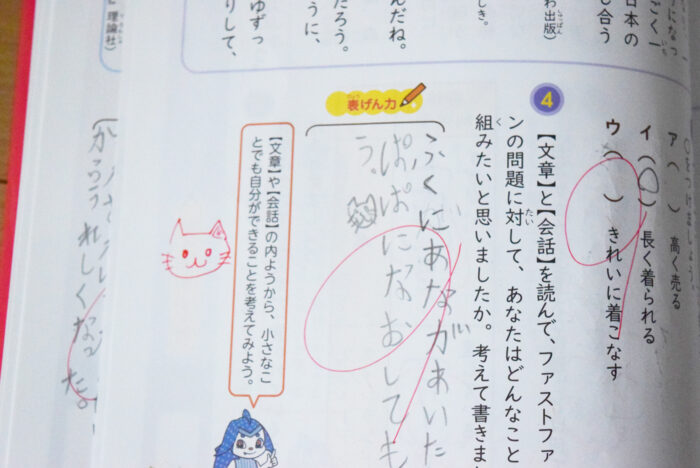 ア（　）高く売る
イ（○）長く着られる
ウ（　）きれいに着こなす
4
【文章】と【会話】を読んで、ファストファ
ンの問題に対して、あなたはどんなこと
組みたいと思いましたか。考えて書きま
表げん力
ふくにあながあいた
ぱぱになおしても
う。
【文章】や【会話】の内ようから、小さなこ
とでも自分ができることを考えてみよう。
日本の
し合う
わ出版）
んだね。
だろう。
うに、
ゆずっ
りして、
理論社）
れしくなった。